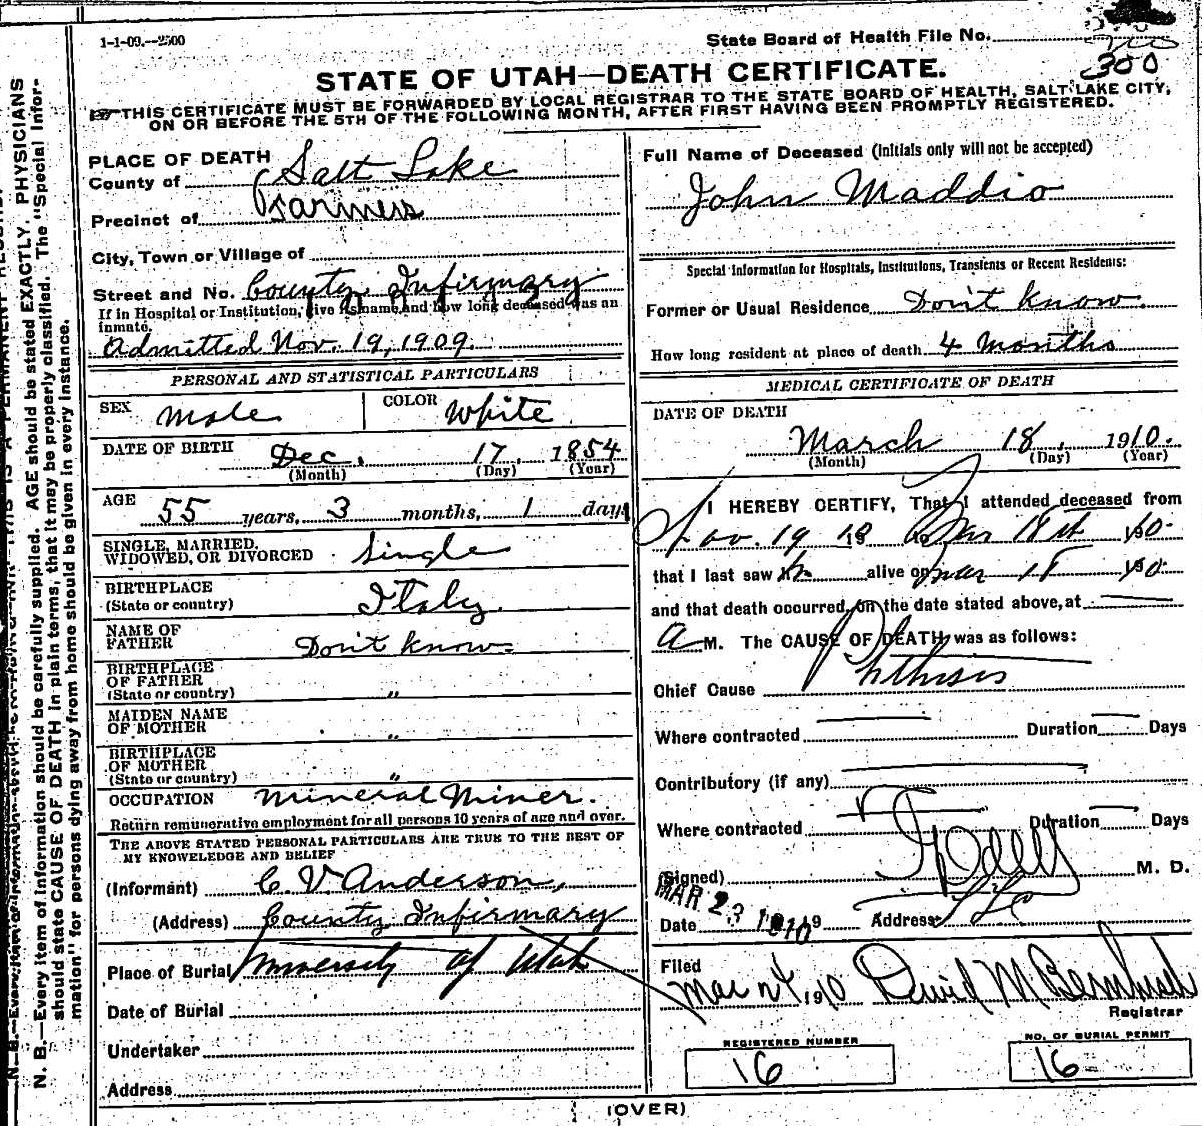 1-1-09.--2500
State Board of Health File No.
300
STATE OF UTAH—DEATH CERTIFICATE.
THIS CERTIFICATE MUST BE FORWARDED BY LOCAL REGISTRAR TO THE STATE BOARD OF HEALTH, SALT LAKE CITY,
ON OR BEFORE THE 5TH OF THE FOLLOWING MONTH, AFTER FIRST HAVING BEEN PROMPTLY REGISTERED.
PLACE OF DEATH
County of Salt Lake
Precinct of Farmers
City, Town or Village of
Street and No. County Infirmary
If in Hospital or Institution, give its name and how long deceased was an
inmate.
Admitted Nov. 19, 1909.
PERSONAL AND STATISTICAL PARTICULARS
SEX Male COLOR White
DATE OF BIRTH Dec. 17, 1854
(Month) (Day) (Year)
AGE 55 years, 3 months, 1 days
SINGLE, MARRIED,
WIDOWED, OR DIVORCED Single
BIRTHPLACE
(State or country) Italy.
NAME OF
FATHER Don't know
BIRTHPLACE
OF FATHER
(State or country) "
MAIDEN NAME
OF MOTHER "
BIRTHPLACE
OF MOTHER
(State or country) "
OCCUPATION Mineral Miner.
Return remunerative employment for all persons 10 years of age and over.
THE ABOVE STATED PERSONAL PARTICULARS ARE TRUE TO THE BEST OF
MY KNOWELEDGE AND BELIEF
(Informant) C. V. Anderson,
(Address) County Infirmary
Place of Burial University of Utah
Date of Burial
Undertaker
Address
Full Name of Deceased (Initials only will not be accepted)
John Maddio
Special Information for Hospitals, Institutions, Transients or Recent Residents:
Former or Usual Residence Don't know.
How long resident at place of death 4 months
MEDICAL CERTIFICATE OF DEATH
DATE OF DEATH
March 18, 1910.
(Month) (Day) (Year)
I HEREBY CERTIFY, That I attended deceased from
Nov. 19 to Mar 18th 1910.
that I last saw him alive on Mar 18 1910.
and that death occurred, on the date stated above, at
A M. The CAUSE OF DEATH was as follows:
Chief Cause Phthisis
Where contracted Duration Days
Contributory (if any)
Where contracted Duration Days
(Signed) M. D.
MAR 23 1910
Date Address
Filed Mar 24 1910 David M
Registrar
REGISTERED NUMBER
16
NO. OF BURIAL PERMIT
16
(OVER)
N. B.—Every item of information should be carefully supplied. AGE should be stated EXACTLY. PHYSICIANS
should state CAUSE OF DEATH in plain terms, that it may be properly classified. The "Special Infor-
mation" for persons dying away from home should be given in every instance.